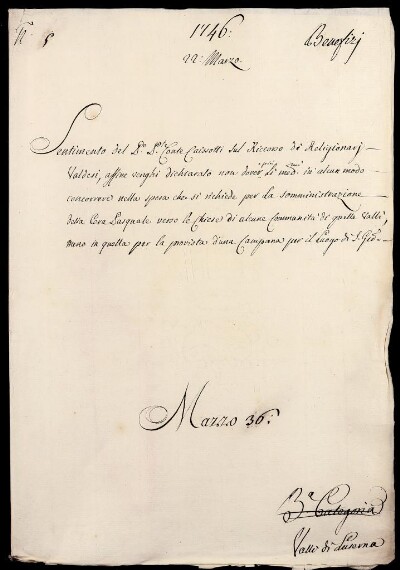 N.° 5
1746:
22: Marzo
Benefizj
Sentimento del Sr. Pr. Conte Caissotti sul Ricorso di Religionarj
Valdesi, affine venghi dichiarato non dover li med.mi in alcun modo
concorrere nella spesa che si richiede per la somministrazione
della Cera Pasquale verso le Chiese di alcune Communità di quella Valle,
meno in quella per la provista d'una Campana per il Luogo di S.
Marzo 36:
3.a Categoria
Valle di Luserna